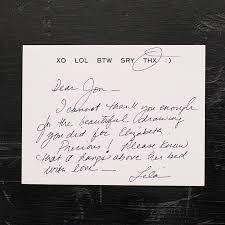 XO LOL BTW SRY THX :)
Dear Jon —
I cannot thank you enough
for the beautiful drawing
you did for Elizabeth.
Precious! Please know
that it hangs above her bed
with love —
Lila